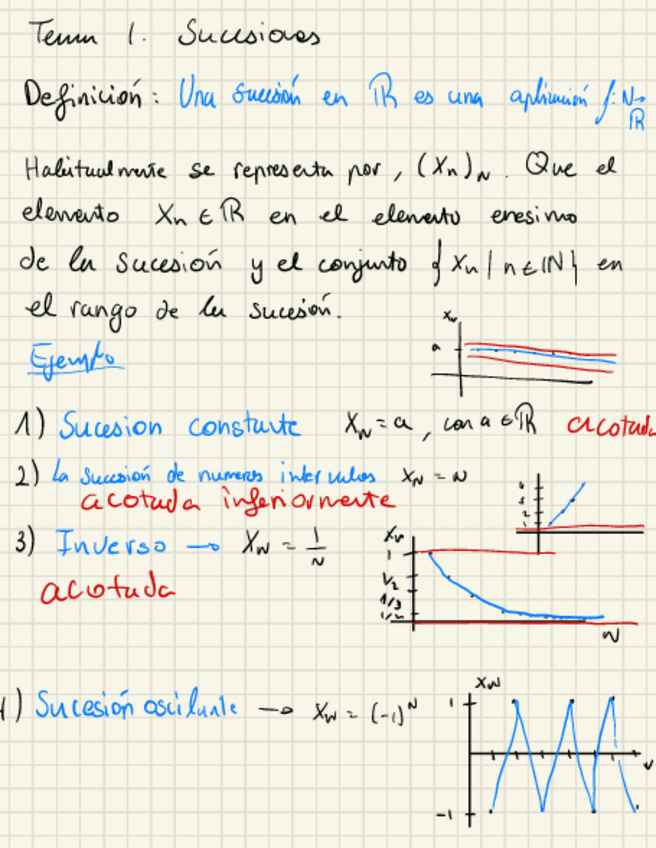 Tema 1. Sucesiones
Definición: Una sucesión en ℝ es una aplicación f: N→
ℝ
Habitualmente se representa por, (Xn)N. Que el
elemento Xn ∈ ℝ en el elemento enesimo
de la sucesión y el conjunto {Xn | n ∈ ℕ} en
el rango de la sucesión.
Ejemplo
Xn
a
1) Sucesion constante XN = a, con a ∈ ℝ acotada
2) La sucesión de numeros XN = N
acotada inferiormente
4
3
2
1
3) Inverso → XN = 1/N
acotada
XN
1
1/2
1/3
N
) Sucesión oscilante → XN = (-1)^N
XN
1
-1